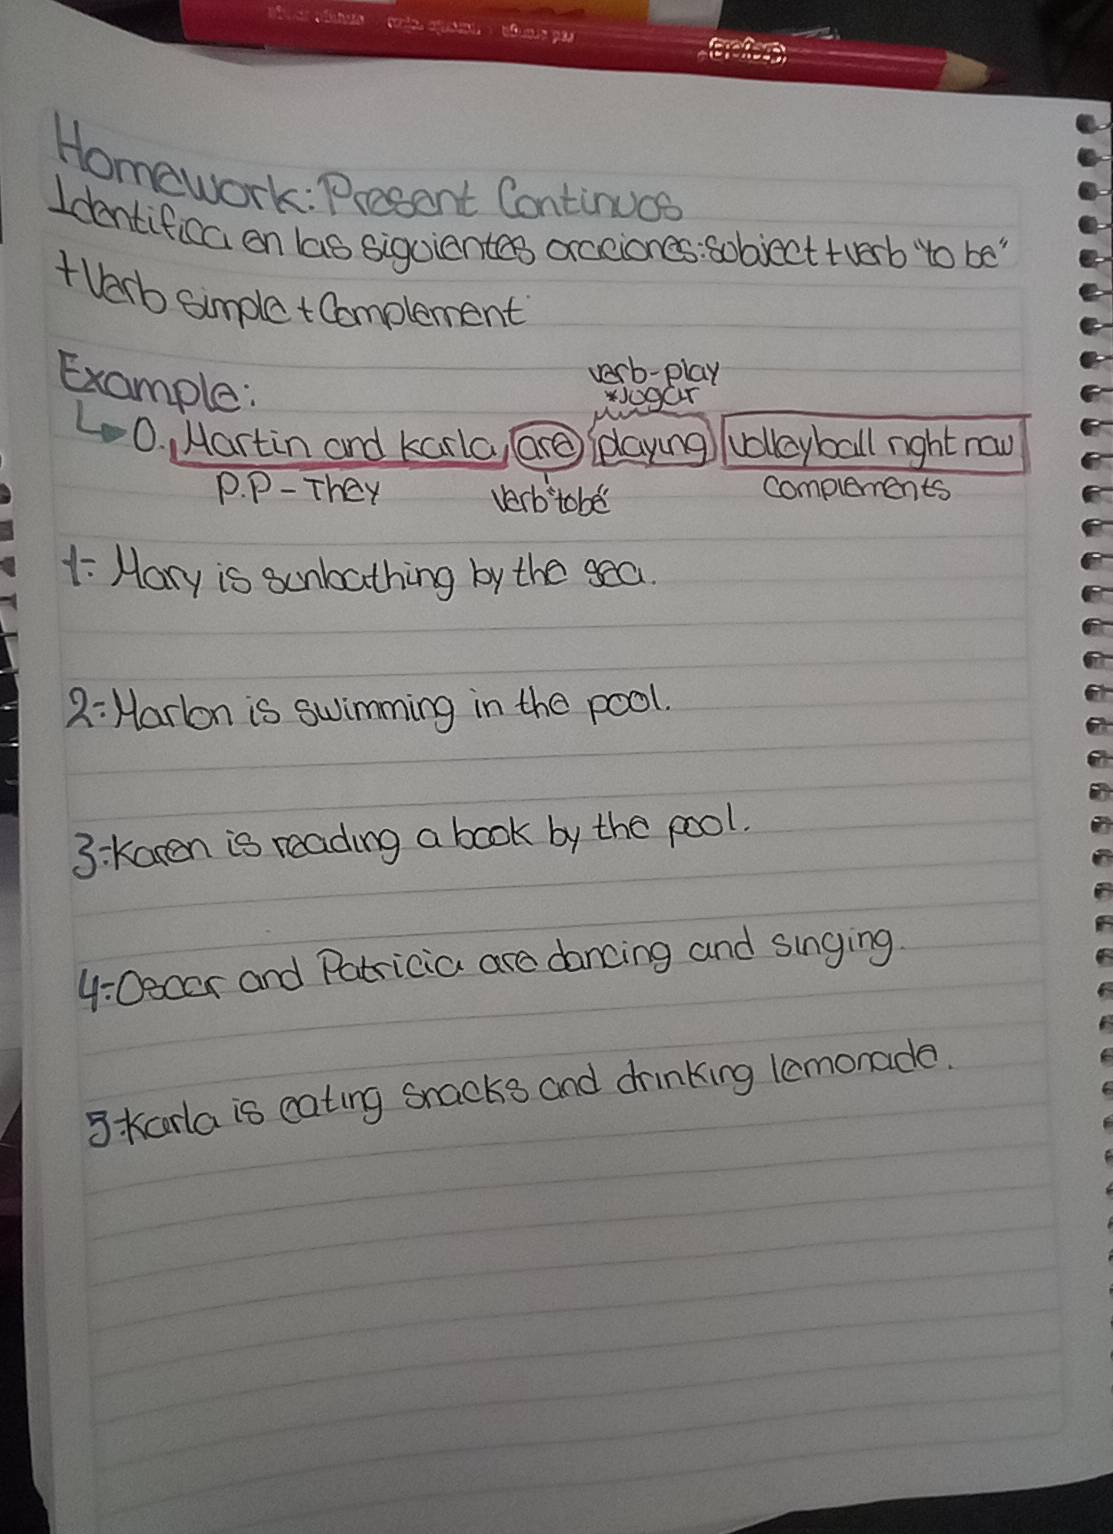 Homework: Present Continuos
Identifica en las siguientes oraciones: subject + verb "to be"
+ Verb simple + Complement
Example:
verb-play
*Jugar
0. Martin and Karla are playing volleyball right now
P.P - They
verb "to be"
complements
1- Mary is sunbathing by the sea.
2- Marlon is swimming in the pool.
3- Karen is reading a book by the pool.
4- Oscar and Patricia are dancing and singing.
5- Karla is eating snacks and drinking lemonade.